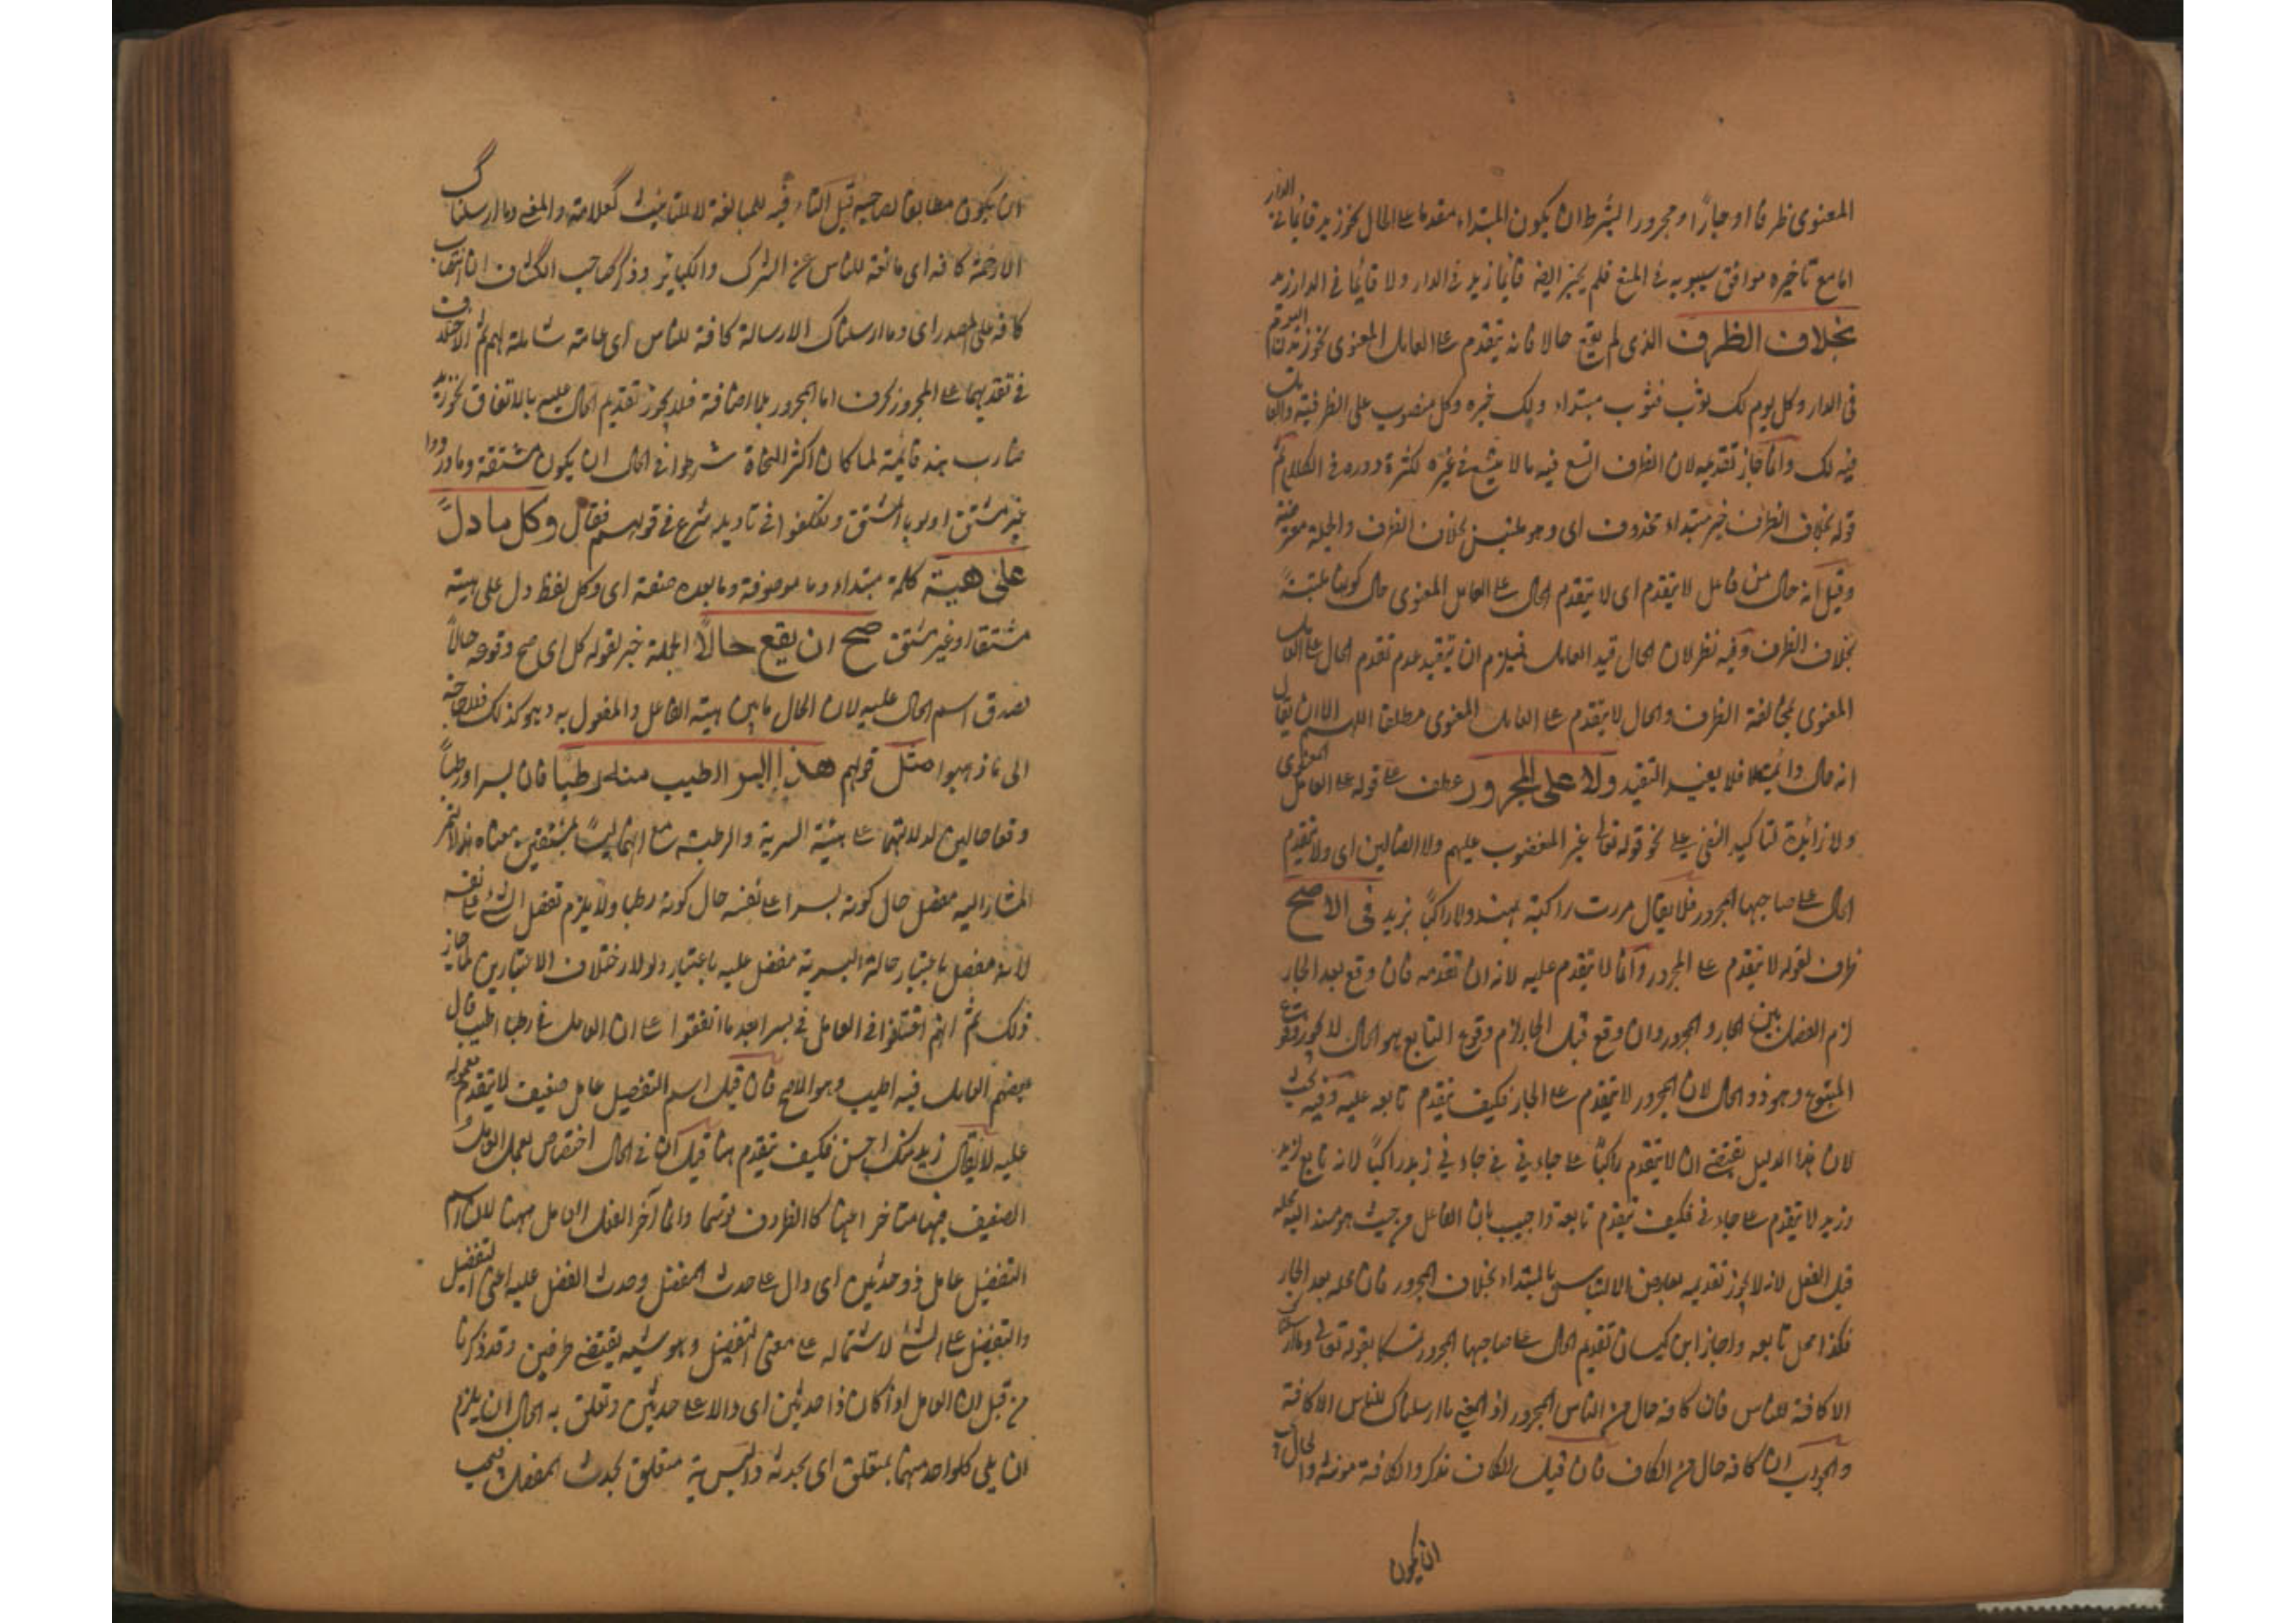 المعنوى ظرفا او جارًا و مجرورا لبشرط ان يكون المبتداء مقدما على الحال نحو زيد قائما فى الدار
اما مع تاخيره موافق سيبويه فى المنع فلم يجيز ايضا قائما زيد فى الدار ولا قائما فى الدار زيد
بخلاف الظرف الذى لم يقع حالا فانه يتقدم على العامل المعنوى نحو زيد ن اليوم
فى الدار وكل يوم لك ثوب فثوب مبتداء ولك خبره وكل منصوب على الظرفية والعامل
فيه لك وانما جاز تقديمه لان الظرف اتسع فيه ما لا يتسع فى غيره لكثرة دوره فى الكلام ثم
قوله بخلاف الظرف خبر مبتداء محذوف اى وهو ملتبس بخلاف الظرف والجملة معترضة
وقيل انه حال من فاعل لا يتقدم اى لا يتقدم الحال على العامل المعنوى حال كونها ملتبسةً
بخلاف الظرف وفيه نظر لان الحال قيد العامل فيلزم ان يتقيد عدم تقدم الحال على العامل
المعنوى بمخالفة الظرف والحال لا يتقدم على العامل المعنوى مطلقا اللهم الا ان يقال
انه حال دائمة فلا يفيد التقيد ولا على المجرور عطف على قوله على العامل المعنوى
ولا زائدة لتاكيد النفى على نحو قوله تعالى غير المغضوب عليهم ولا الضالين اى ولا يتقدم
الحال على صاحبها المجرور فلا يقال مررت راكبة بهند ولا راكبًا بزيد فى الاصح
ظرف لقوله لا يتقدم على المجرور وانما لا يتقدم عليه لانه ان تقدمه فان وقع بعد الجار
لزم الفصل بين الجار و المجرور وان وقع قبل الجار لزم وقوع التابع وهو الحال لا يجوز وقوع
المتبوع وهو ذو الحال لان المجرور لا يتقدم على الجار فكيف يتقدم تابعه عليه وفيه بحث
لان هذا الدليل يقتضى ان لا يتقدم راكبًا على جاءنى فى جاءنى زيد راكبًا لانه تابع لزيد
وزيد لا يتقدم على جاءنى فكيف يتقدم تابعه واجيب بان الفاعل من حيث هو مسند اليه محله
قبل الفعل لانه لا يجوز تقديمه بعارض الالتباس بالمبتداء بخلاف المجرور فان محله بعد الجار
فكذا محل تابعه واجاز ابن كيسان تقديم الحال على صاحبها المجرور تمسكا بقوله تعالى وما ارسلناك
الا كافة للناس فان كافة حال من الناس المجرور اذ المعنى ما ارسلناك للناس الا كافة
والجواب ان كافة حال من الكاف فان قيل الكاف مذكر والكافة مونثة والحال يجب
ان يكون
ان يكون مطابقا لصاحبه قيل التاء فيه للمبالغة لا للتانيث كعلامة والمعنى وما ارسلناك
الا رحمة كافة اى مانعة للناس عن الشرك والكبائر وذكر صاحب الكشاف ان انتصاب
كافة على المصدر اى وما ارسلناك الا رسالة كافة للناس اى عامة شاملة لهم ثم الاختلاف
فى تقديمها على المجرور بحرف اما المجرور بالاضافة فلا يجوز تقديم الحال عليه بالاتفاق نحو زيد
ضارب هند قائمة لما كان اكثر النحاة شرطوا فى الحال ان يكون مشتقة وما وردوا
غير مشتق اولوه بالمشتق وتكلفوا فى تاويله شرع فى قولهم فقال وكل ما دلً
على هيئة كلمة مبتداء وما موصوفة وما بعده صفة اى وكل لفظ دل على هيئة
مشتقا او غير مشتق صح ان يقع حالًا الجملة خبر لقوله كل اى صح وقوعه حالًا
لصدق اسم الحال عليه لان الحال ما يبين هيئة الفاعل والمفعول به وهو كذلك فلا حاجة
الى ما ذهبوا مثل قولهم هذا البسر اطيب منه رطبا فان بسرا ورطباً
وقعا حالين لدلالتهما على هيئة البسرية والرطبية مع انهما ليسا بمشتقين معناه هذا التمر
المشار اليه مفضل حال كونه بسرا على نفسه حال كونه رطبا ولا يلزم تفضل الشئ على نفسه
لانه مفضل باعتبار حالة البسرية مفضل عليه باعتبار ولولا اختلاف الاعتبارين لما جاز
ذلك ثم انهم اختلفوا فى العامل فى بسرا بعد ما اتفقوا على ان العامل فى رطبا اطيب قال
بعضهم العامل فيه اطيب وهو الاصح فان قيل اسم التفضيل عامل ضعيف لا يتقدم معموله
عليه لا يقال زيد منك احسن فكيف يتقدم هنا قيل ان فى الحال اختصاص بعمل العامل
الضعيف فيها متاخرا عنها كالظروف توسعا وانما آخر الفعل العامل ههنا لان اسم
التفضيل عامل ذو حدثين اى دال على حدث المفضل وحدث الفضل عليه اعنى التفضيل
والتفضيل على الشئ لاشتماله على معنى التفضيل وهو شيه يقتضى طرفين وقد ذكرنا
من قبل ان العامل اذا كان ذا حدثين اى دالا على حدثين وتعلق به الحال ان يلزم
ان يلى كلواحد منهما بمتعلق اى بحدثه والبسرية متعلق بحدث المفضل فيجب